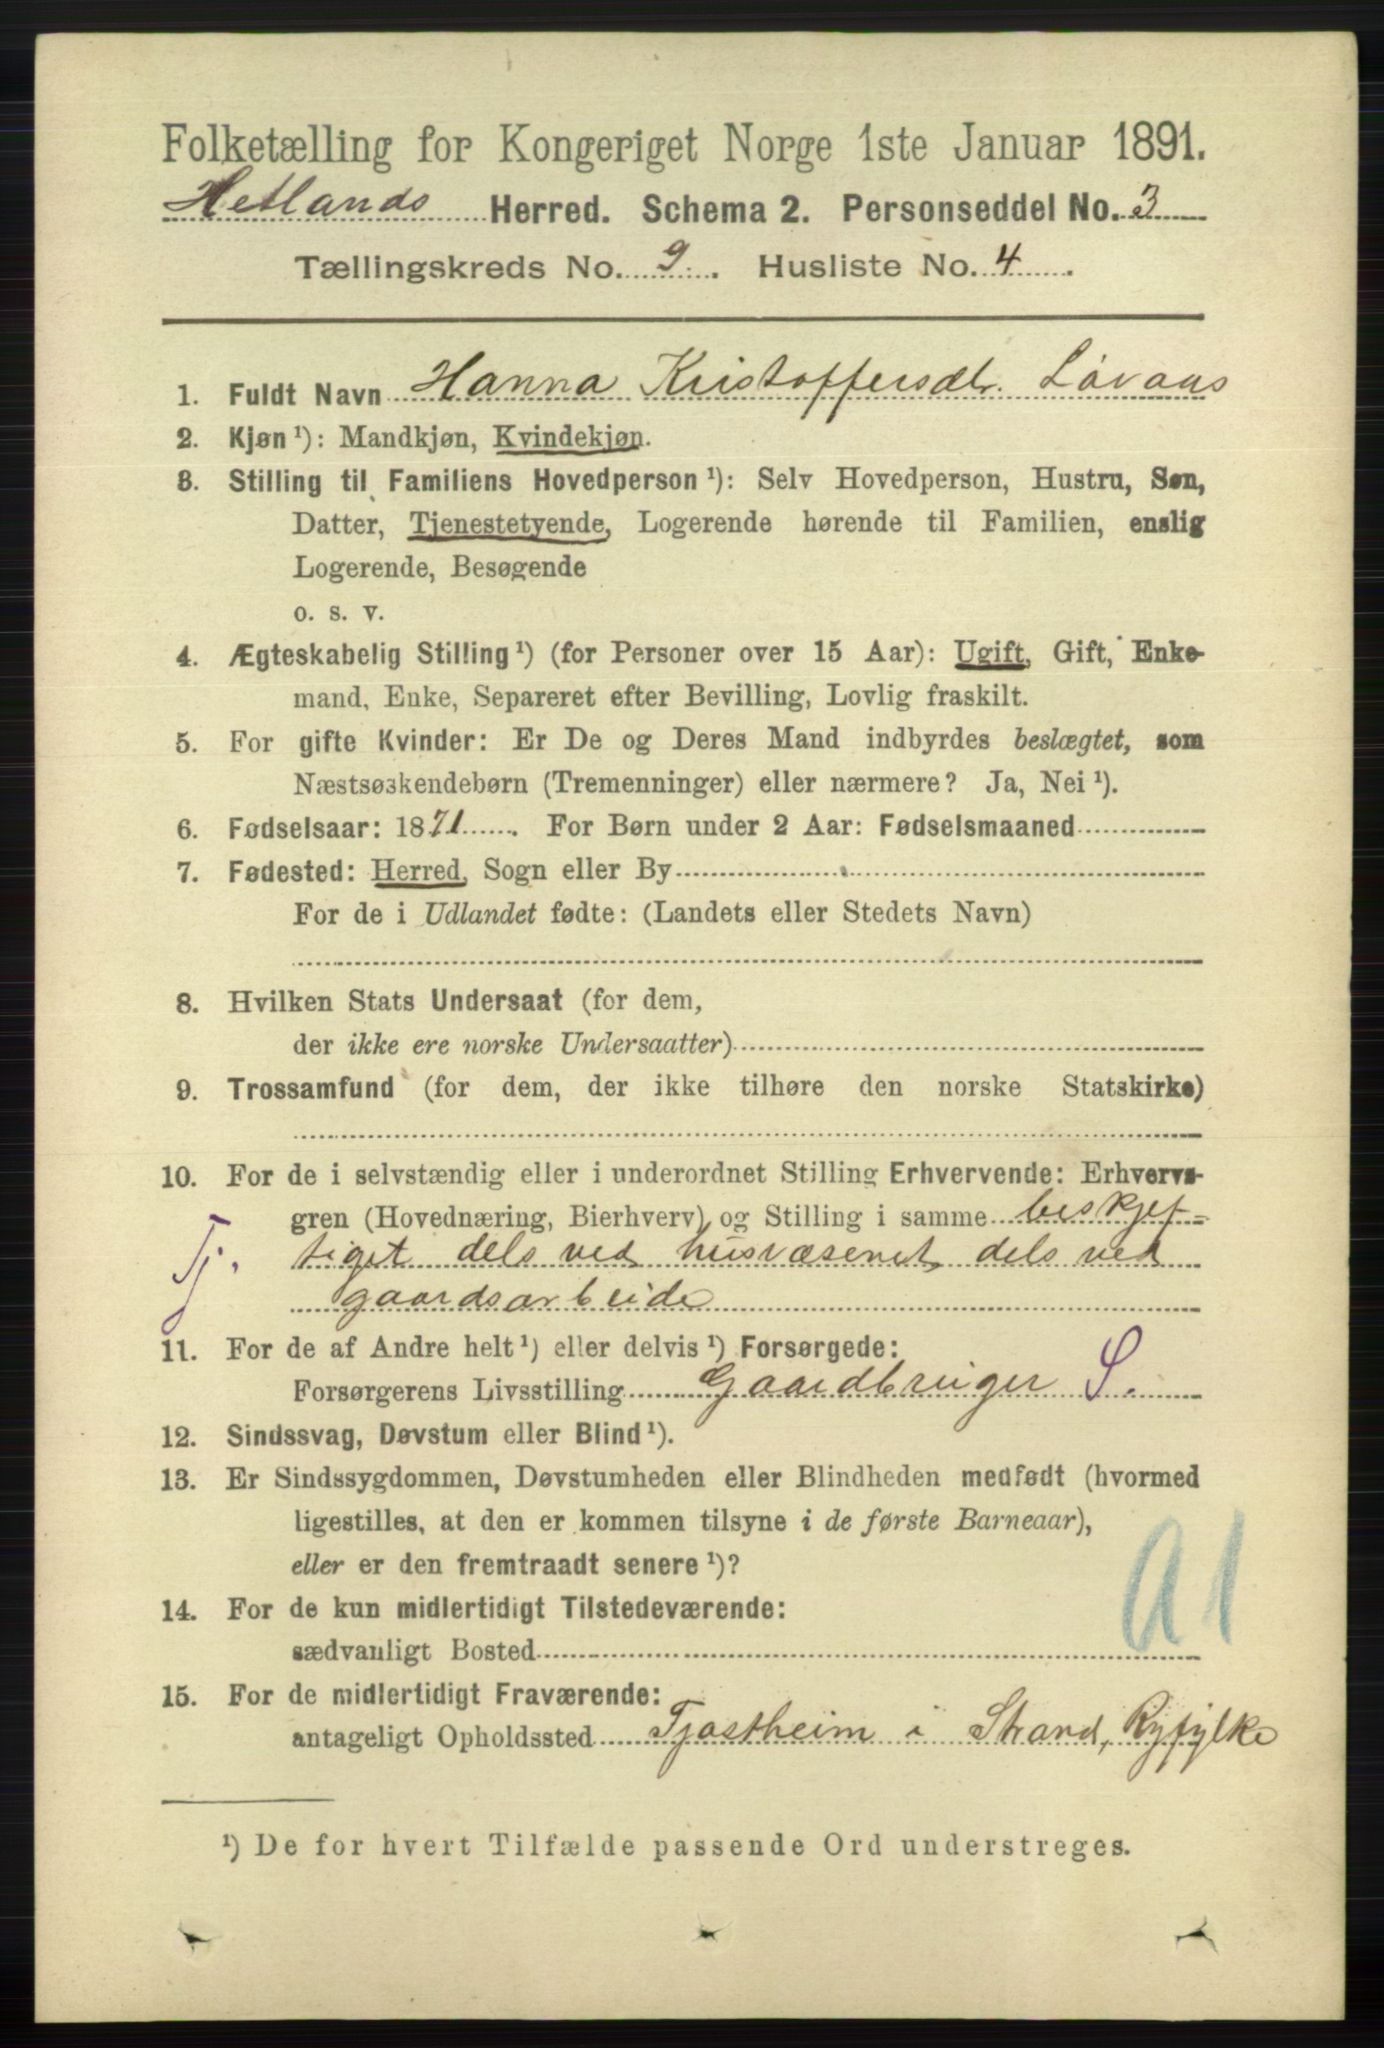 Folketælling for Kongeriget Norge 1ste Januar 1891.
Hetlands Herred. Schema 2. Personseddel No. 3
Tællingskreds No. 9. Husliste No. 4.
1. Fuldt Navn Hanna Kristoffersdtr. Løvaas
2. Kjøn ¹): Mandkjøn, Kvindekjøn.
3. Stilling til Familiens Hovedperson ¹): Selv Hovedperson, Hustru, Søn,
Datter, Tjenestetyende, Logerende hørende til Familien, enslig
Logerende, Besøgende
o. s. v.
4. Ægteskabelig Stilling ¹) (for Personer over 15 Aar): Ugift, Gift, Enke-
mand, Enke, Separeret efter Bevilling, Lovlig fraskilt.
5. For gifte Kvinder: Er De og Deres Mand indbyrdes beslægtet, som
Næstsøskendebørn (Tremenninger) eller nærmere? Ja, Nei ¹).
6. Fødselsaar: 1871. For Børn under 2 Aar: Fødselsmaaned
7. Fødested: Herred, Sogn eller By
For de i Udlandet fødte: (Landets eller Stedets Navn)
8. Hvilken Stats Undersaat (for dem,
der ikke ere norske Undersaatter)
9. Trossamfund (for dem, der ikke tilhøre den norske Statskirke)
10. For de i selvstændig eller i underordnet Stilling Erhvervende: Erhvervs-
gren (Hovednæring, Bierhverv) og Stilling i samme beskjef-
Tj. tiget dels ved husvæsenet, dels ved
gaardsarbeide
11. For de af Andre helt ¹) eller delvis ¹) Forsørgede:
Forsørgerens Livsstilling Gaardbruger S.
12. Sindssvag, Døvstum eller Blind ¹).
13. Er Sindssygdommen, Døvstumheden eller Blindheden medfødt (hvormed
ligestilles, at den er kommen tilsyne i de første Barneaar),
eller er den fremtraadt senere ¹)?
A1
14. For de kun midlertidigt Tilstedeværende:
sædvanligt Bosted
15. For de midlertidigt Fraværende:
antageligt Opholdssted Tjøstheim i Strand, Ryfylke
¹) De for hvert Tilfælde passende Ord understreges.